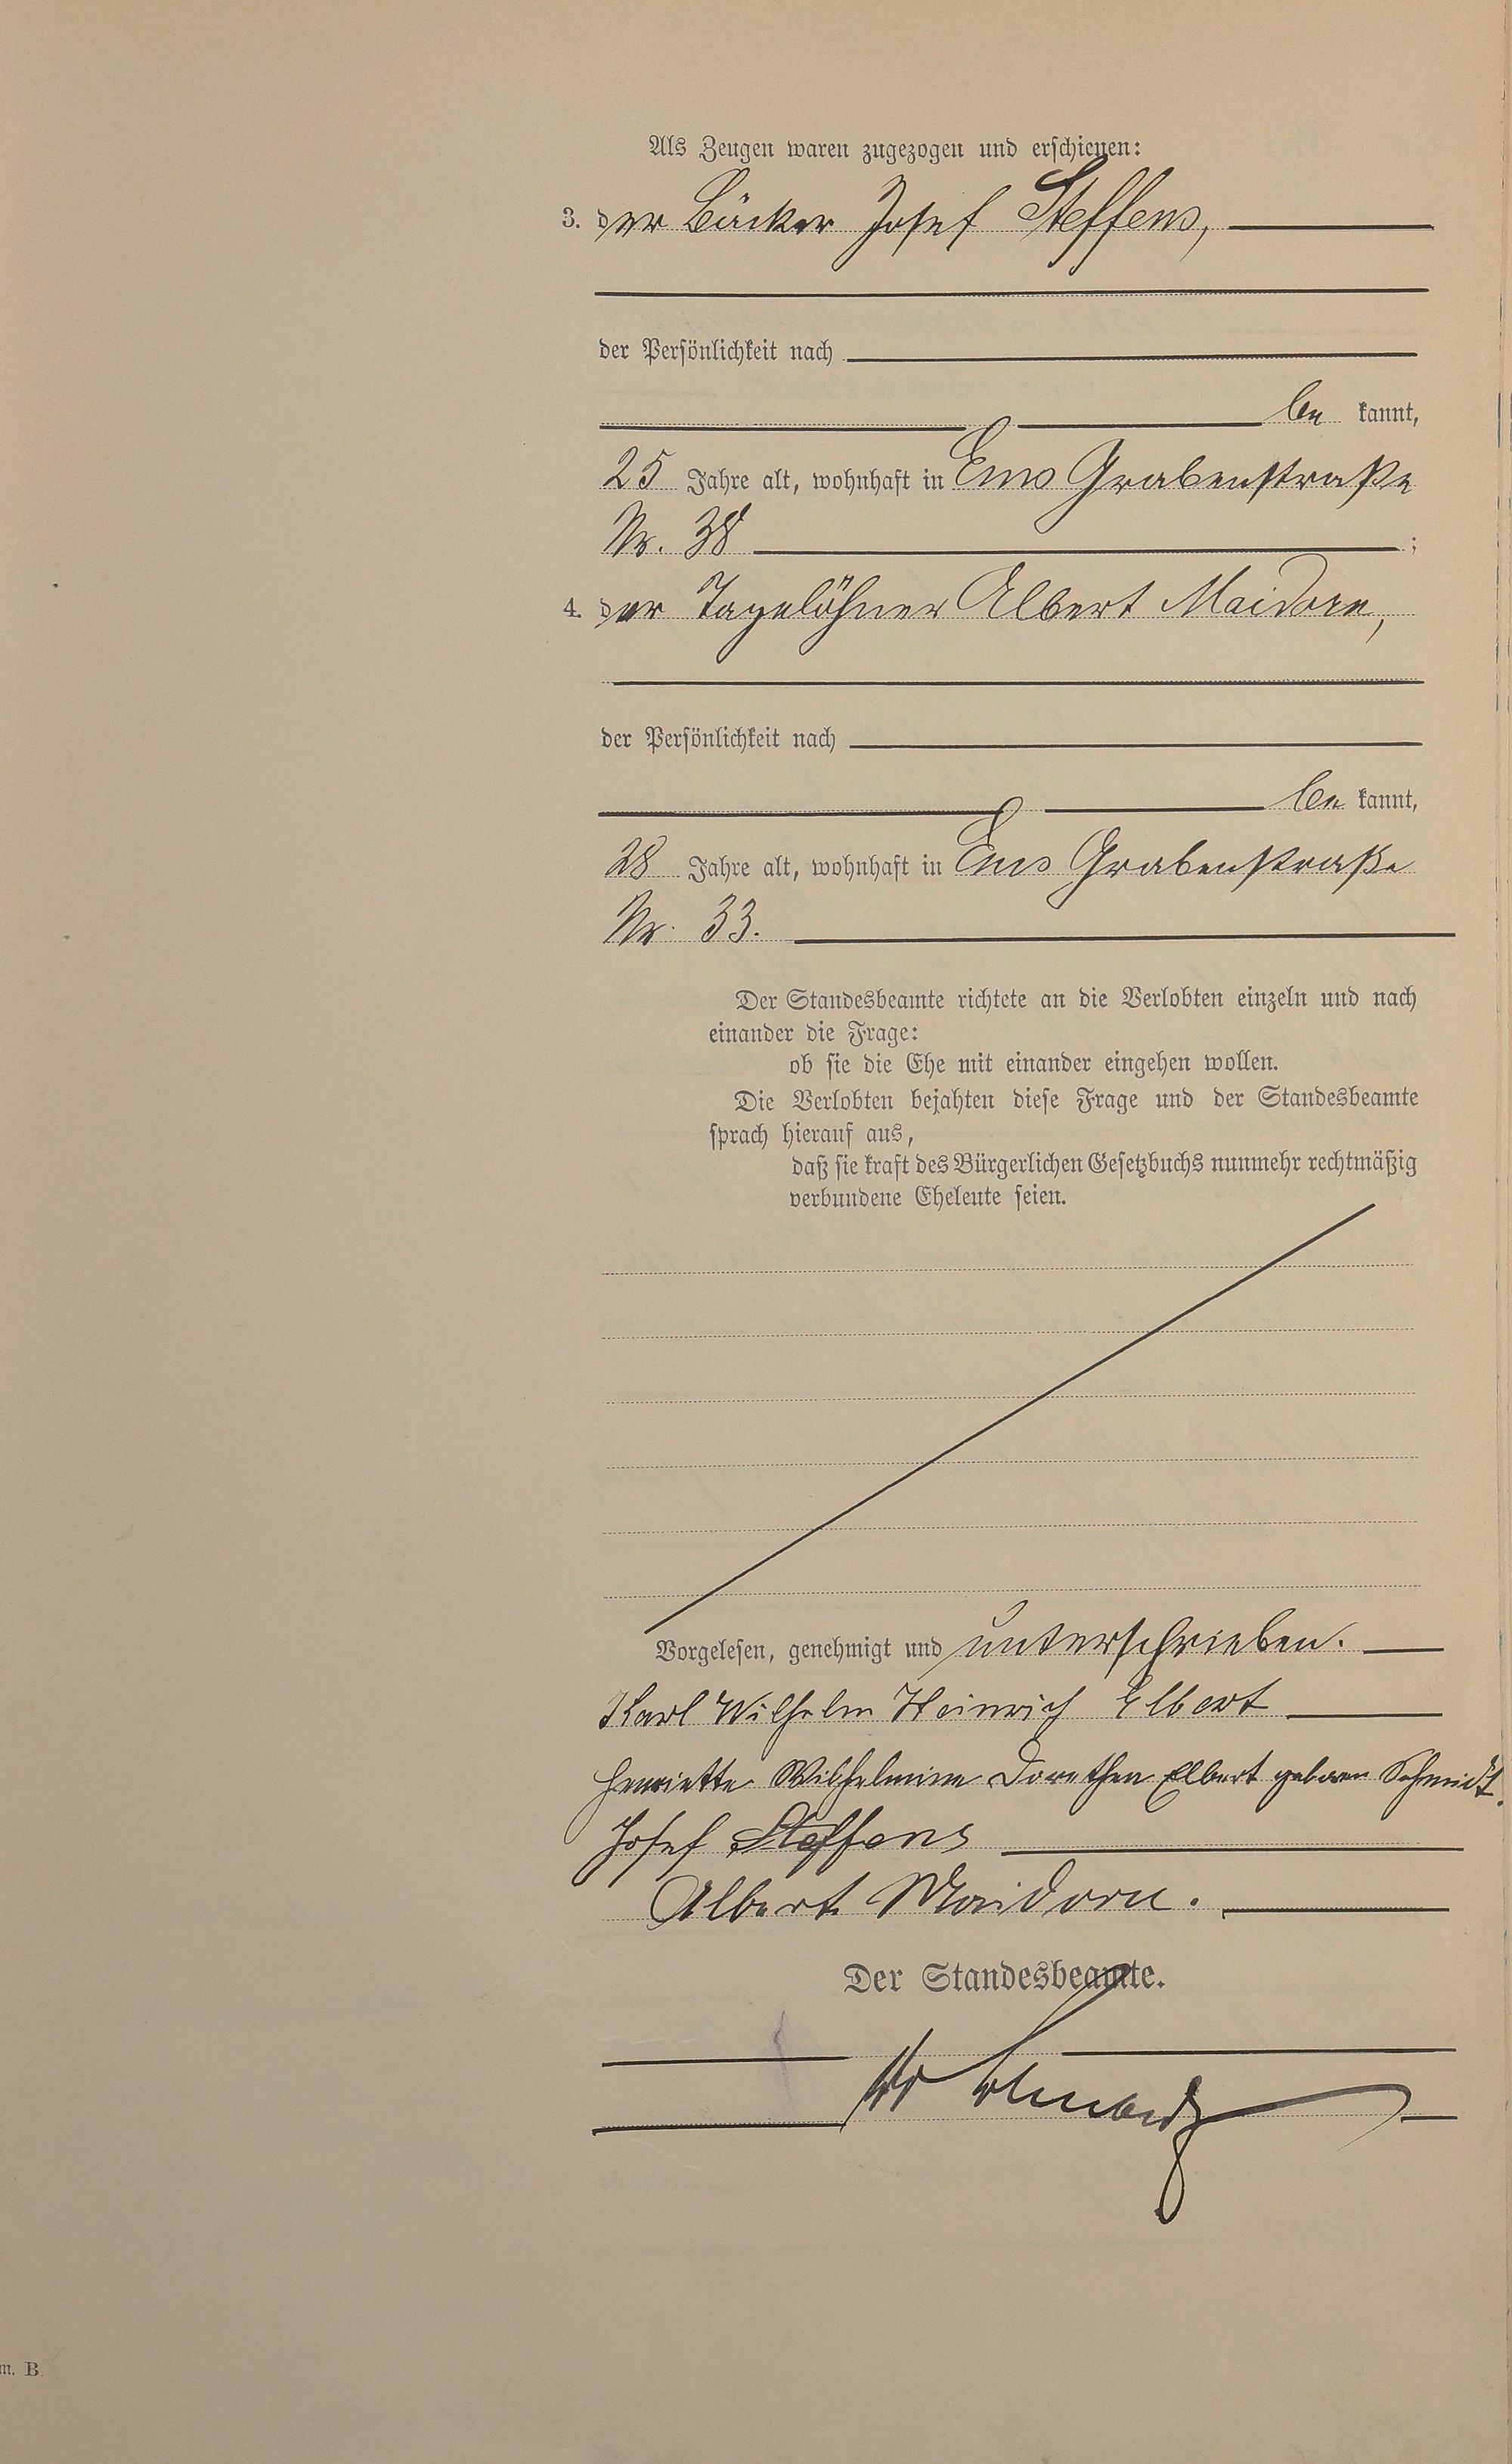 Als Zeugen waren zugezogen und erschienen:
3. der Bäcker Josef Steffens,
der Persönlichkeit nach
be kannt,
25 Jahre alt, wohnhaft in Ems Grabenstraße
Nr. 38 ;
4. der Tagelöhner Albert Maidorn,
der Persönlichkeit nach
be kannt,
28 Jahre alt, wohnhaft in Ems Grabenstraße
Nr. 33.
Der Standesbeamte richtete an die Verlobten einzeln und nach
einander die Frage:
ob sie die Ehe mit einander eingehen wollen.
Die Verlobten bejahten diese Frage und der Standesbeamte
sprach hierauf aus,
daß sie kraft des Bürgerlichen Gesetzbuchs nunmehr rechtmäßig
verbundene Eheleute seien.
Vorgelesen, genehmigt und unterschrieben.
Karl Wilhelm Heinrich Elbert
Henriette Wilhelmine Dorothea Elbert geboren Schmidt.
Josef Steffens
Albert Maidorn.
Der Standesbeamte.
m. B.